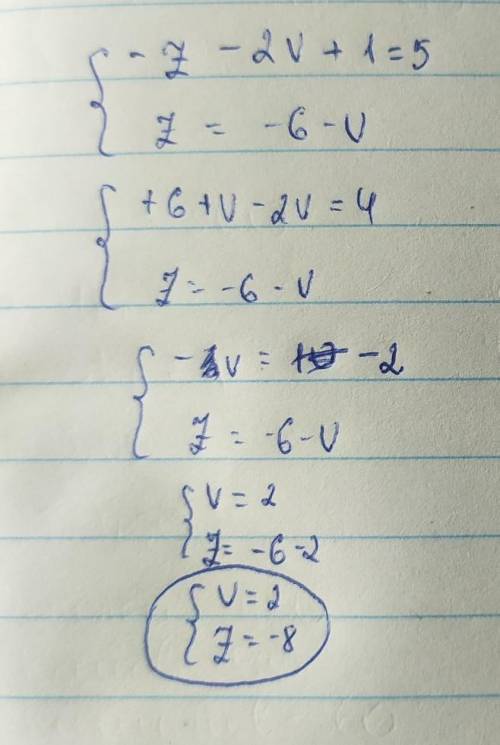 - z - 2v + 1 = 5
z = -6 - v
+6 + v - 2v = 4
z = -6 - v
-v = -2
z = -6 - v
v = 2
z = -6 - 2
v = 2
z = -8